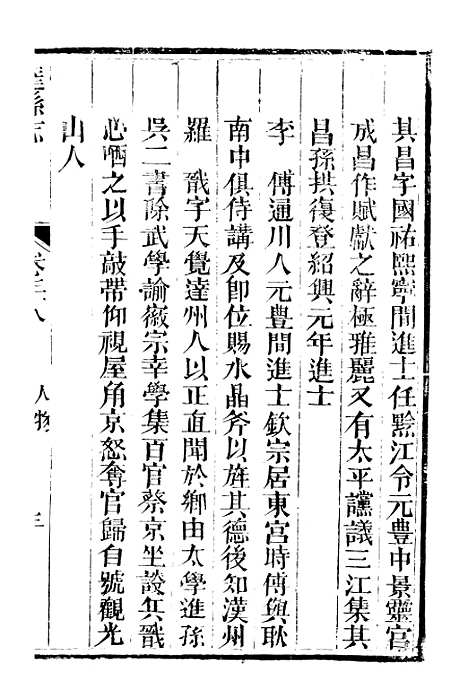 其昌字國祐熙寧間進士任黔江令元豐中景靈宮
成昌作賦獻之辭極雅麗又有太平讜議三江集其
昌孫拱復登紹興元年進士
李　傅通川人元豐間進士欽宗居東宮時傅與耿
南中俱侍講及卽位賜水晶斧以旌其德後知漢州
羅　戩字天覺達州人以正直聞於鄉由太學進孫
吳二書除武學諭徽宗幸學集百官蔡京坐設兵戩
心哂之以手敲帶仰視屋角京怒奪官歸自號觀光
山人
縣志
卷三十八
人物
三